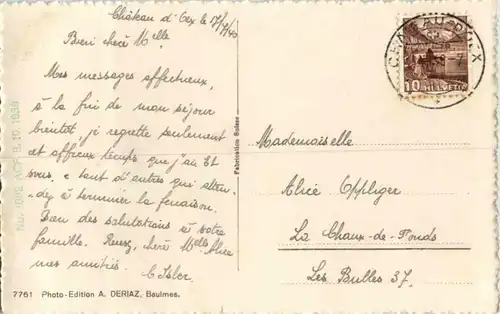 Château d'Oex le 17/7/40
Bien chère Mlle
Mes messages affectueux,
à la fin de mon séjour
bientôt, je regrette seulement
cet affreux temps que j'ai Et
vous, e tant d'autres qui atten-
dez à terminer la fenaison.
Bien des salutations à votre
famille. Recevez, chère Mlle Alice
mes amitiés. C. Isler.
7761 Photo-Edition A. DERIAZ, Baulmes.
Fabrication Suisse
CHATEAU-D'OEX
10 HELVETIA
Mademoiselle
Alice Oppliger
La Chaux-de-Fonds
Les Bulles 37.